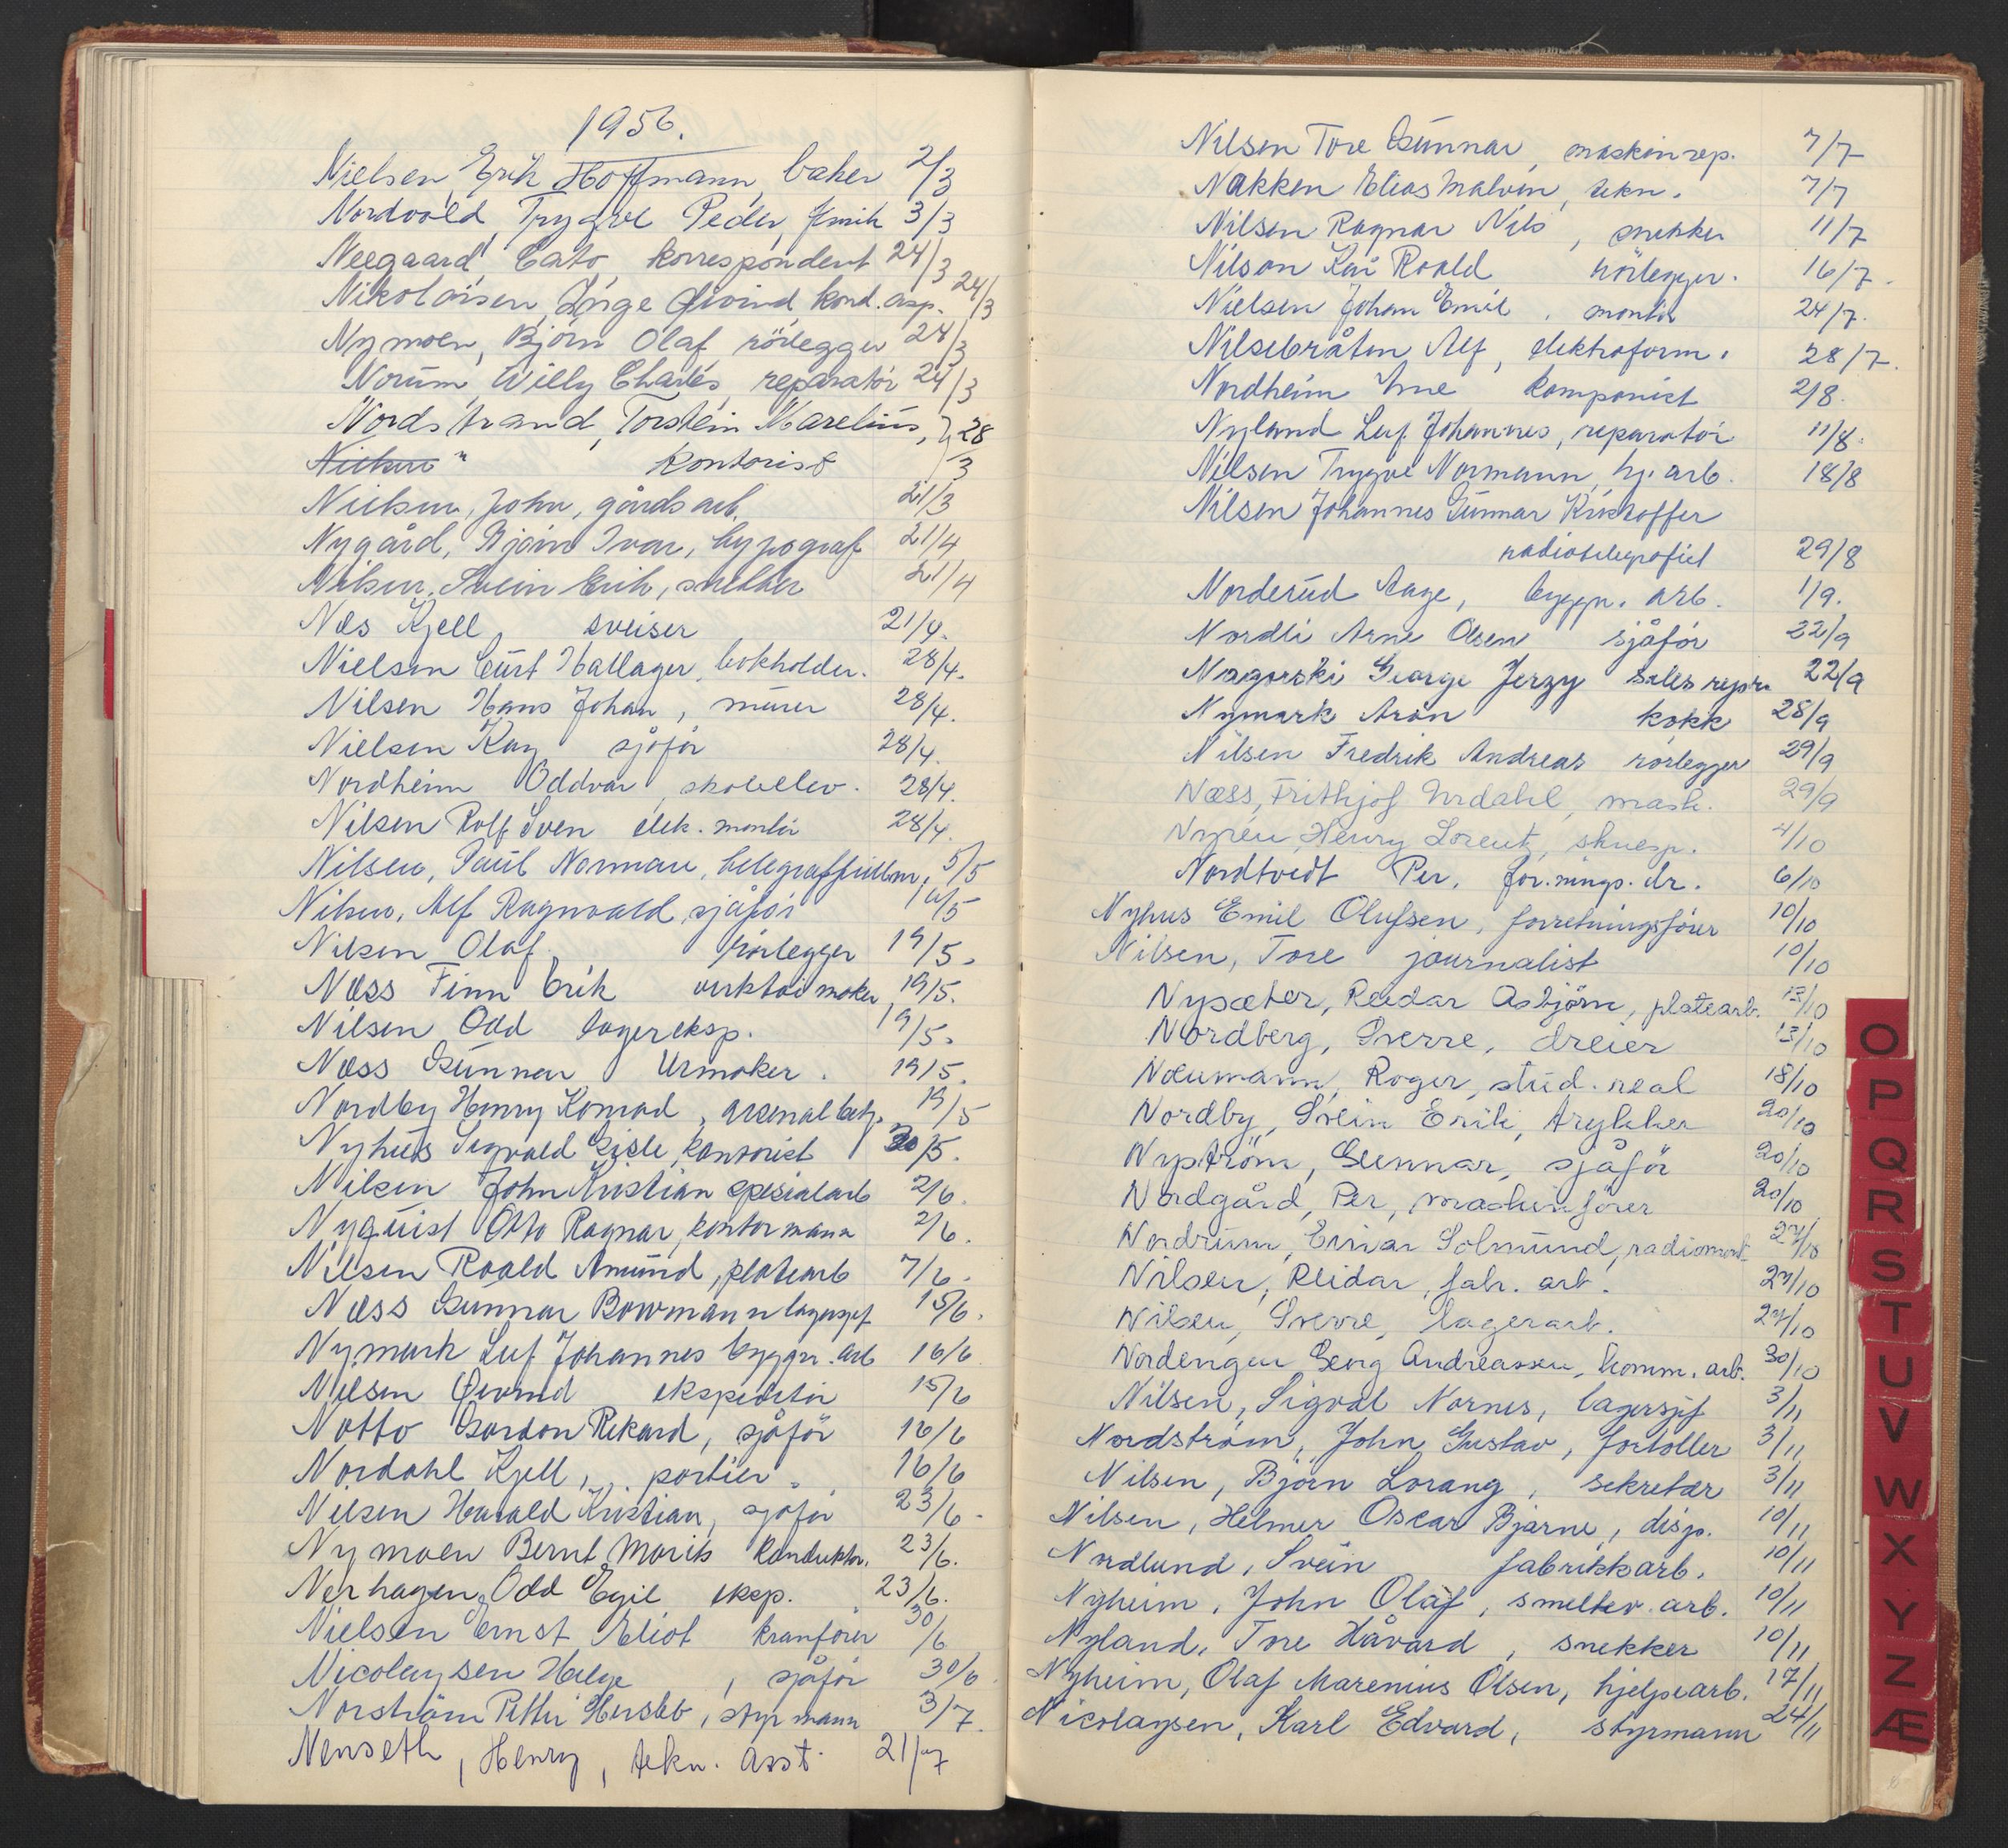 1956.
Nielsen, Erik Hoffmann, baker 2/3
Nordvold, Trygve Peder, smih 3/3
Neegaard, Cato, korrespondent 24/3
Nikolaisen, Inge Øivind kond. asp. 24/3
Nymoen, Bjørn Olaf, rörlegger 24/3
Norum, Willy Charles, reparatör 24/3
Nordstrand, Torstein Marelius, } 28
" kontorist 3
Nielsen, John, gårdsarb. 21/3
Nygård, Bjørn Ivar, typograf 21/4
Nilsen, Svein Erik, snekker 21/4
Næs Kjell, sveiser 21/4.
Nielsen Curt Hallager, bokholder. 28/4.
Nilsen Hans Johan, murer 28/4.
Nielsen Kay sjåför 28/4.
Nordheim Oddvar, skoleelev. 28/4.
Nilsen Rolf Sven elek. montör 28/4.
Nilsen, Paul Norman, 5/5
Nilsen, Alf Ragnvald, sjåför /5
Nilsen Olaf, rörlegger 19/5.
Næss Finn Erik verktöimaker 19/5.
Nilsen Odd lagereksp. 19/5.
Næss Gunnar Urmaker. 19/5.
Nordby Henry Konrad, arsenalbetj. 19/5
Nyhus Sigvald Gisle, kontorist 30/5.
Nilsen John Kristian spesialarb 2/6.
Nyquist Otto Ragnar, kontormann 2/6.
Nilsen Roald Amund, platearb 7/6.
Næss Gunnar Bowmann lagersjef 15/6.
Nymark Leif Johannes byggn. arb 16/6
Nilsen Øivind ekspeditör 15/6
Notto Gordon Rikard, sjåför 16/6
Nordahl Kjell, portier. 16/6
Nilsen Harald Kristian, sjåför 23/6.
Nymoen Bernt Morits konduktör. 23/6.
Nerhagen, Odd Egil eksp. 23/6.
Nielsen Ernst Eliot kranförer 30/6
Nicolaysen Helge, sjåför 30/6.
Norström Petter Hersleb, styrmann 3/7.
Nenseth, Henry, tekn. asst. 21/7
Nilsen Tore Gunnar, maskinrep. 7/7
Nakken Elias Malvin, tekn. 7/7
Nilsen Ragnar Nils, snekker 11/7
Nilson Kai Roald rörlegger. 16/7.
Nielsen Johan Emil, montör 24/7.
Nilsebråten Alf, elektroform. 28/7.
Nordheim Arne komponist 2/8.
Nyland Leif Johannes, reparatör 11/8.
Nilsen Trygve Normann, hj. arb. 18/8
Nilsen Johannes Gunnar Kristoffer
radiotelegrafist 29/8
Norderud Aage, byggn. arb. 1/9.
Nordli Arne Olsen sjåför 22/9
Nagorski George Jerzy sales repr. 22/9
Nymark Aron kokk 28/9
Nilsen Fredrik Andreas rörlegger 29/9
Næss, Frithjof Urdahl, mask. 29/9
Nyrén, Henry Lorentz, skuesp. 4/10
Nordtvedt Per, for.nings.dr. 6/10
Nyhus Emil Olufsen, forretningsförer 10/10
Nilsen, Tore journalist 10/10
Nysæter, Reidar Asbjörn, platearb. 13/10
Nordberg, Sverre, dreier 13/10
Neumann, Roger, stud. real 18/10
Nordby, Svein Erik, trykker 20/10
Nyström, Gunnar, sjåför 20/10
Nordgård, Per, maskinförer 20/10
Nordrum, Einar Solmund, radiomont. 27/10
Nilsen, Reidar, fabr. arb. 27/10
Nilsen, Sverre, lagerarb. 27/10
Nordengen Georg Andreassen, komm. arb. 30/10
Nilsen, Sigvat Nornes, lagersjef 3/11
Nordström, John Gustav, fortoller 3/11
Nilsen, Björn Lorang, sekretær 3/11
Nilsen, Helmer Oscar Bjarne, disp. 10/11
Nordlund, Svein fabrikkarb. 10/11
Nyheim, John Olaf, smeltev. arb. 10/11
Nyland, Tore Håvard, snekker 10/11
Nyheim, Olaf Marenius Olsen, hjelpearb. 17/11
Nicolaysen, Karl Edvard, styrmann 24/11
O
P
Q
R
S
T
U
V
W
X
Y
Z
Æ